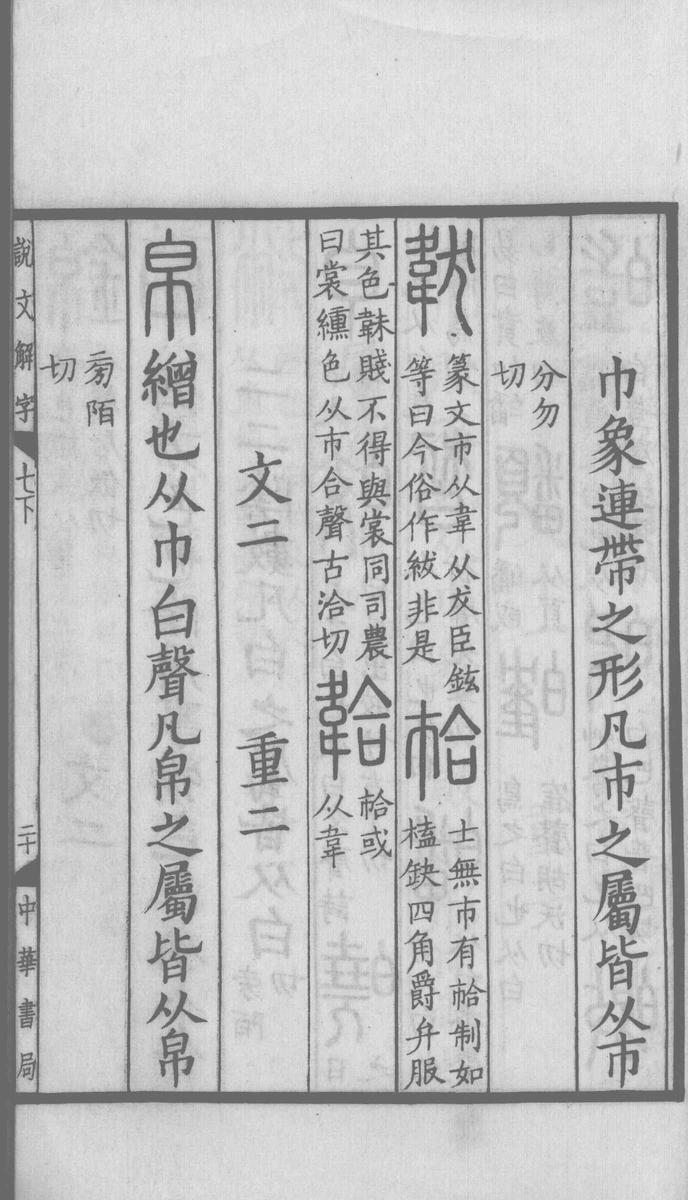 巾象連帶之形凡巿之屬皆从巿
分勿
切
韍
篆文巿从韋从犮臣鉉
等曰今俗作紱非是
𢂷
士無巿有𢂷制如
榼缺四角爵弁服
其色韎賤不得與裳同司農
曰裳纁色从巿合聲古洽切
韐
𢂷或
从韋
文二 重二
帛
繒也从巾白聲凡帛之屬皆从帛
㫄陌
切
說文解字 七下 二十 中華書局